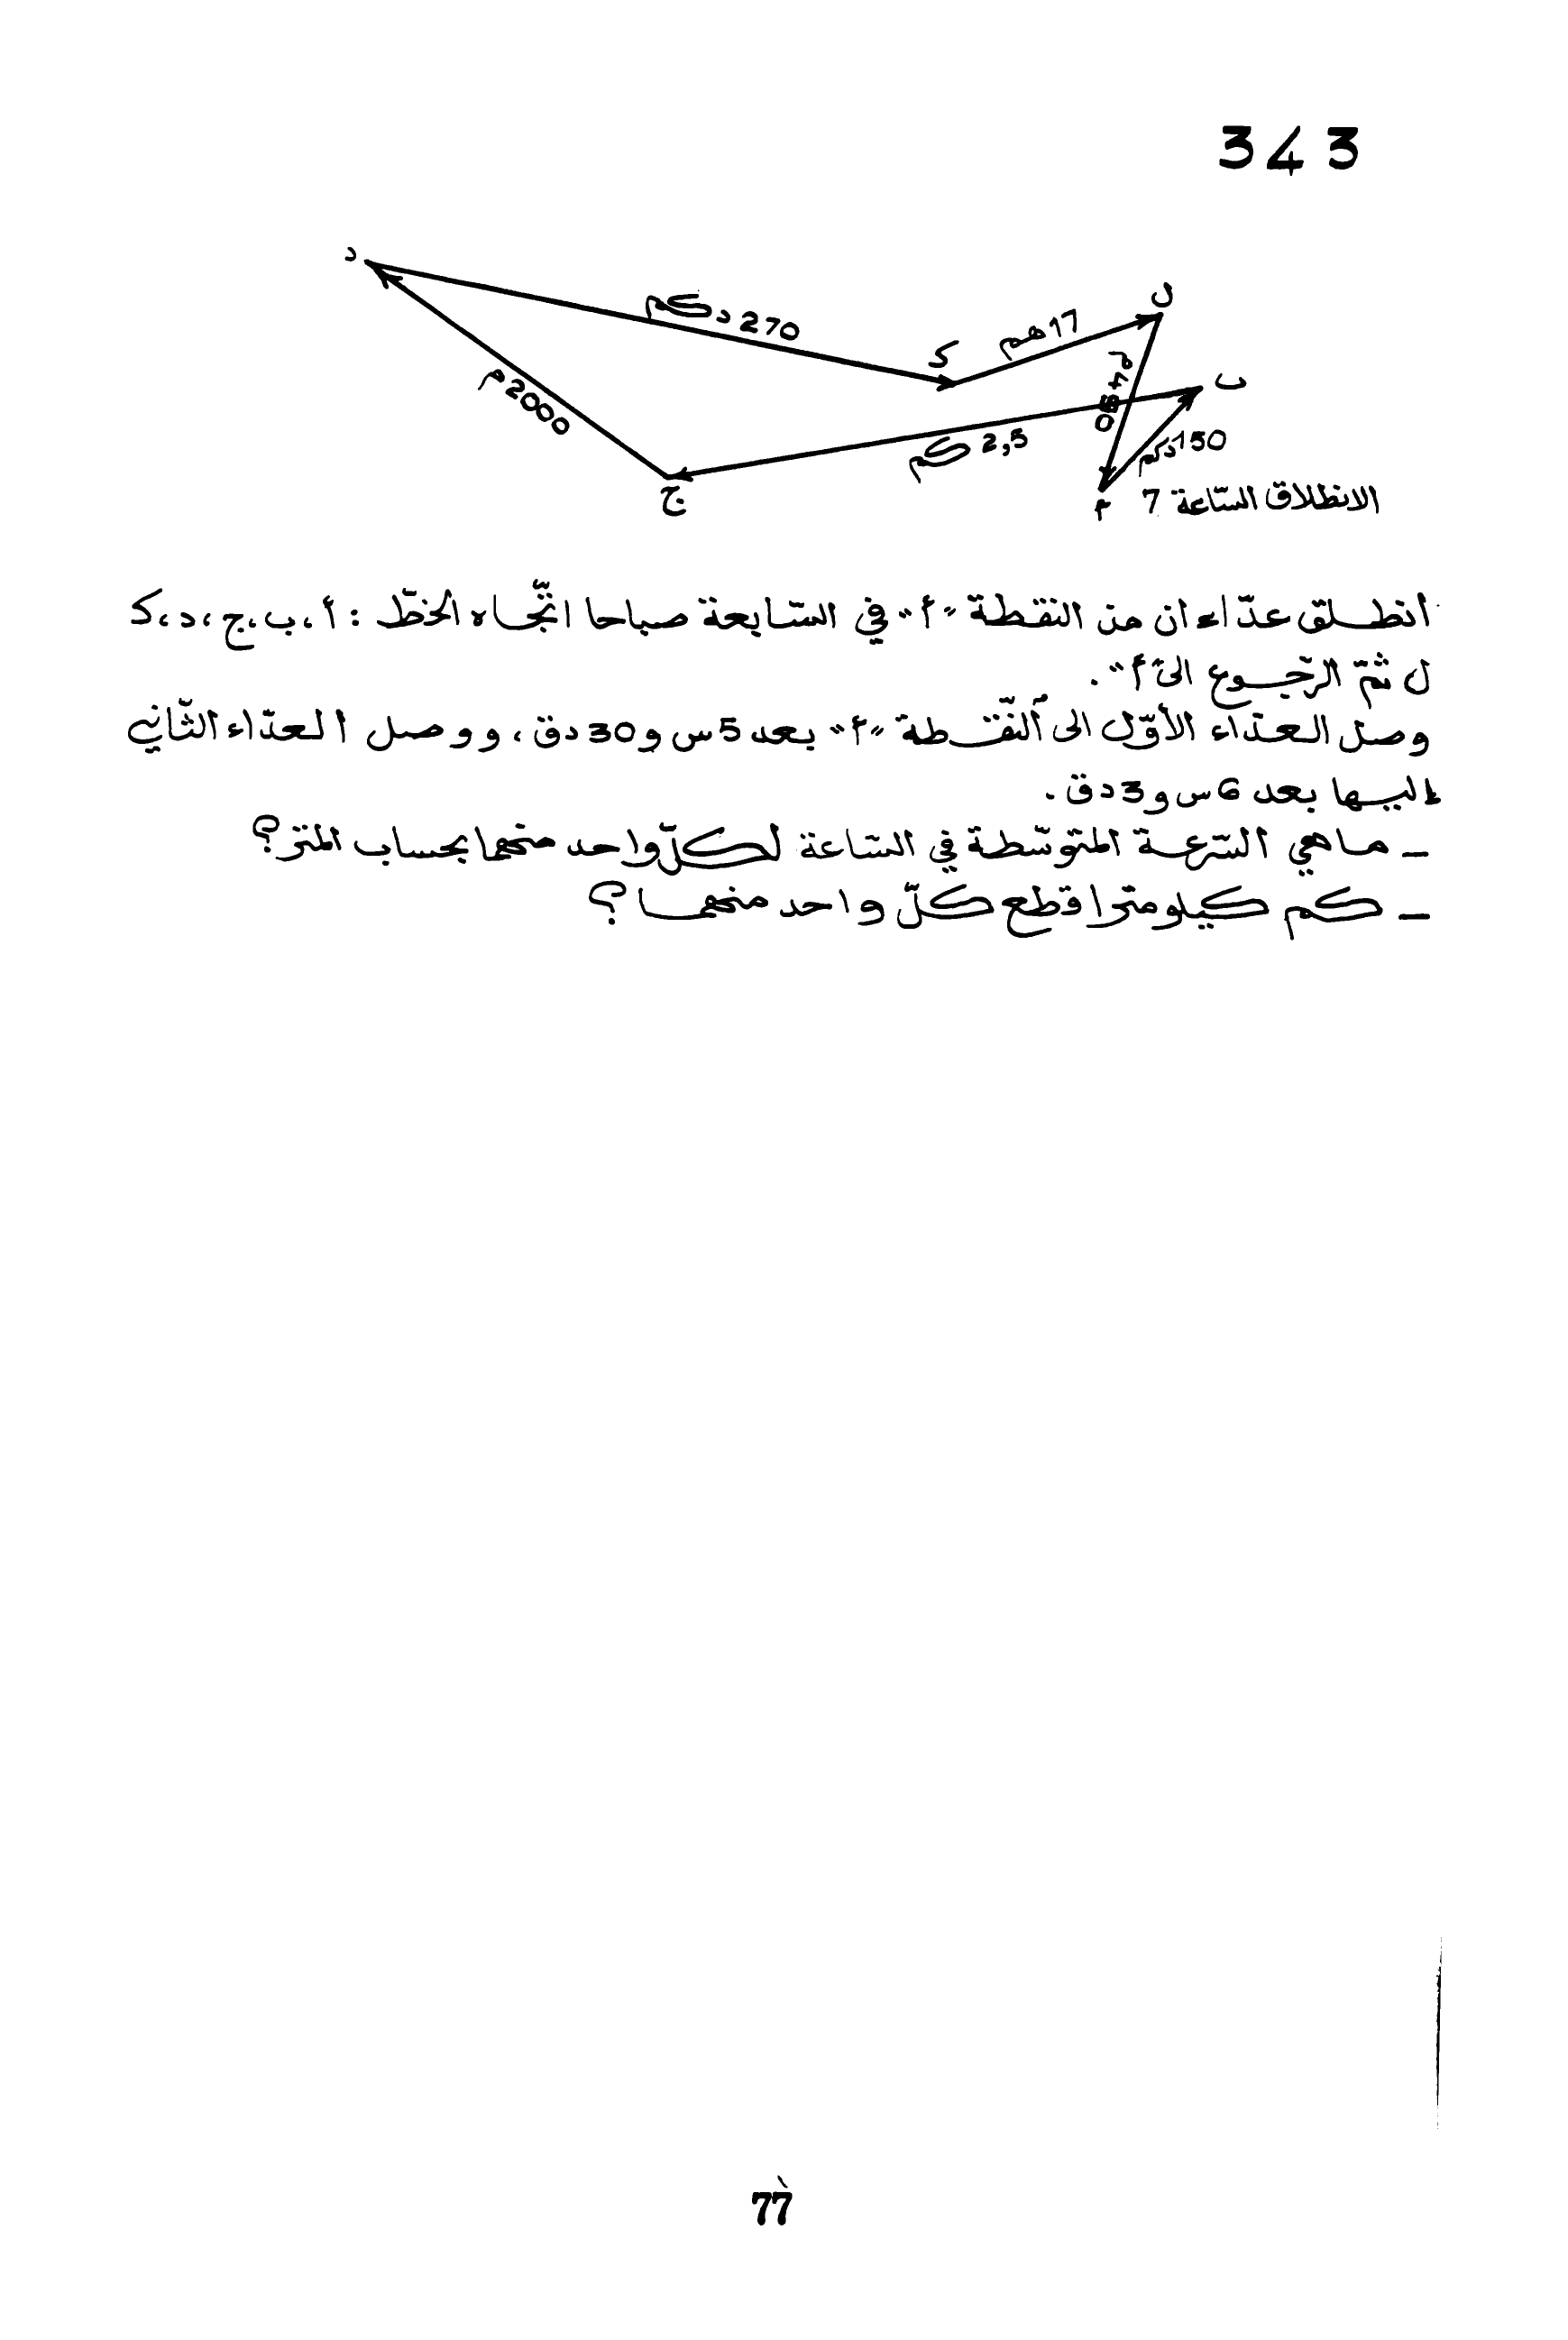 343
د
270 دكم
ل
17 هم
ك
ب
2000 م
2,5 كم
150 دكم
ج
أ
الانطلاق السّاعة 7
انطلق عدّاءان من النقطة "أ" في السّابعة صباحا اتّجاه الخطّ : أ، ب، ج، د، ك
ل ثمّ الرّجوع الى "أ".
وصل العدّاء الأوّل الى النّقطة "أ" بعد 5 س و 30 دق، ووصل العدّاء الثّاني
إليها بعد 6 س و 3 دق.
– ماهي السّرعة المتوسّطة في السّاعة لكلّ واحد منهما بحساب المتر؟
– كم كيلومترا قطع كلّ واحد منهما؟
77